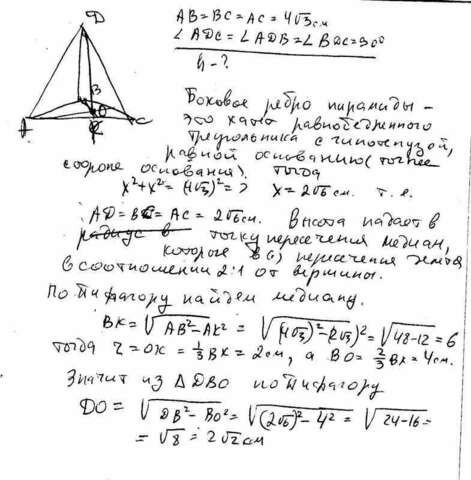 D
B
O
A
K
C
AB = BC = AC = 4√3 см
∠ADC = ∠ADB = ∠BDC = 90°
h - ?
Боковое ребро пирамиды -
это катет равнобедренного
треугольника с гипотенузой,
равной основанию (точнее
стороне основания). Тогда
x²+x² = (4√3)² => x = 2√6 см. т. е.
AD = BC = AC = 2√6 см. Высота падает в
радиус в точку пересечения медиан,
которые в () пересечения
в соотношении 2:1 от вершины.
По Пифагору найдем медиану.
BK = √AB² - AK² = √(4√3)² - (2√3)² = √48-12 = 6
тогда r = OK = 1/3 BK = 2см, а BO = 2/3 BK = 4см.
Значит из △DBO по Пифагору
DO = √DB² - BO² = √(2√6)² - 4² = √24-16 =
= √8 = 2√2 см